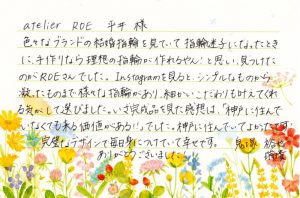 atelier ROE 平井 様
色々なブランドの結婚指輪を見ていて指輪迷子になったとき
に、手作りなら理想の指輪が作れるやん！と思い、見つけた
のがROEさんでした。Instagramを見ると、シンプルなものから
凝ったものまで様々な指輪があり、細かいこだわりも叶えてくれ
る気がして選びました。いざ完成品を見た感想は、「神戸に住んで
いなくても来る価値がある!!」でした。神戸に住んでいてよかったです！
完璧なデザインで毎日身につけていて幸せです。
ありがとうございました。